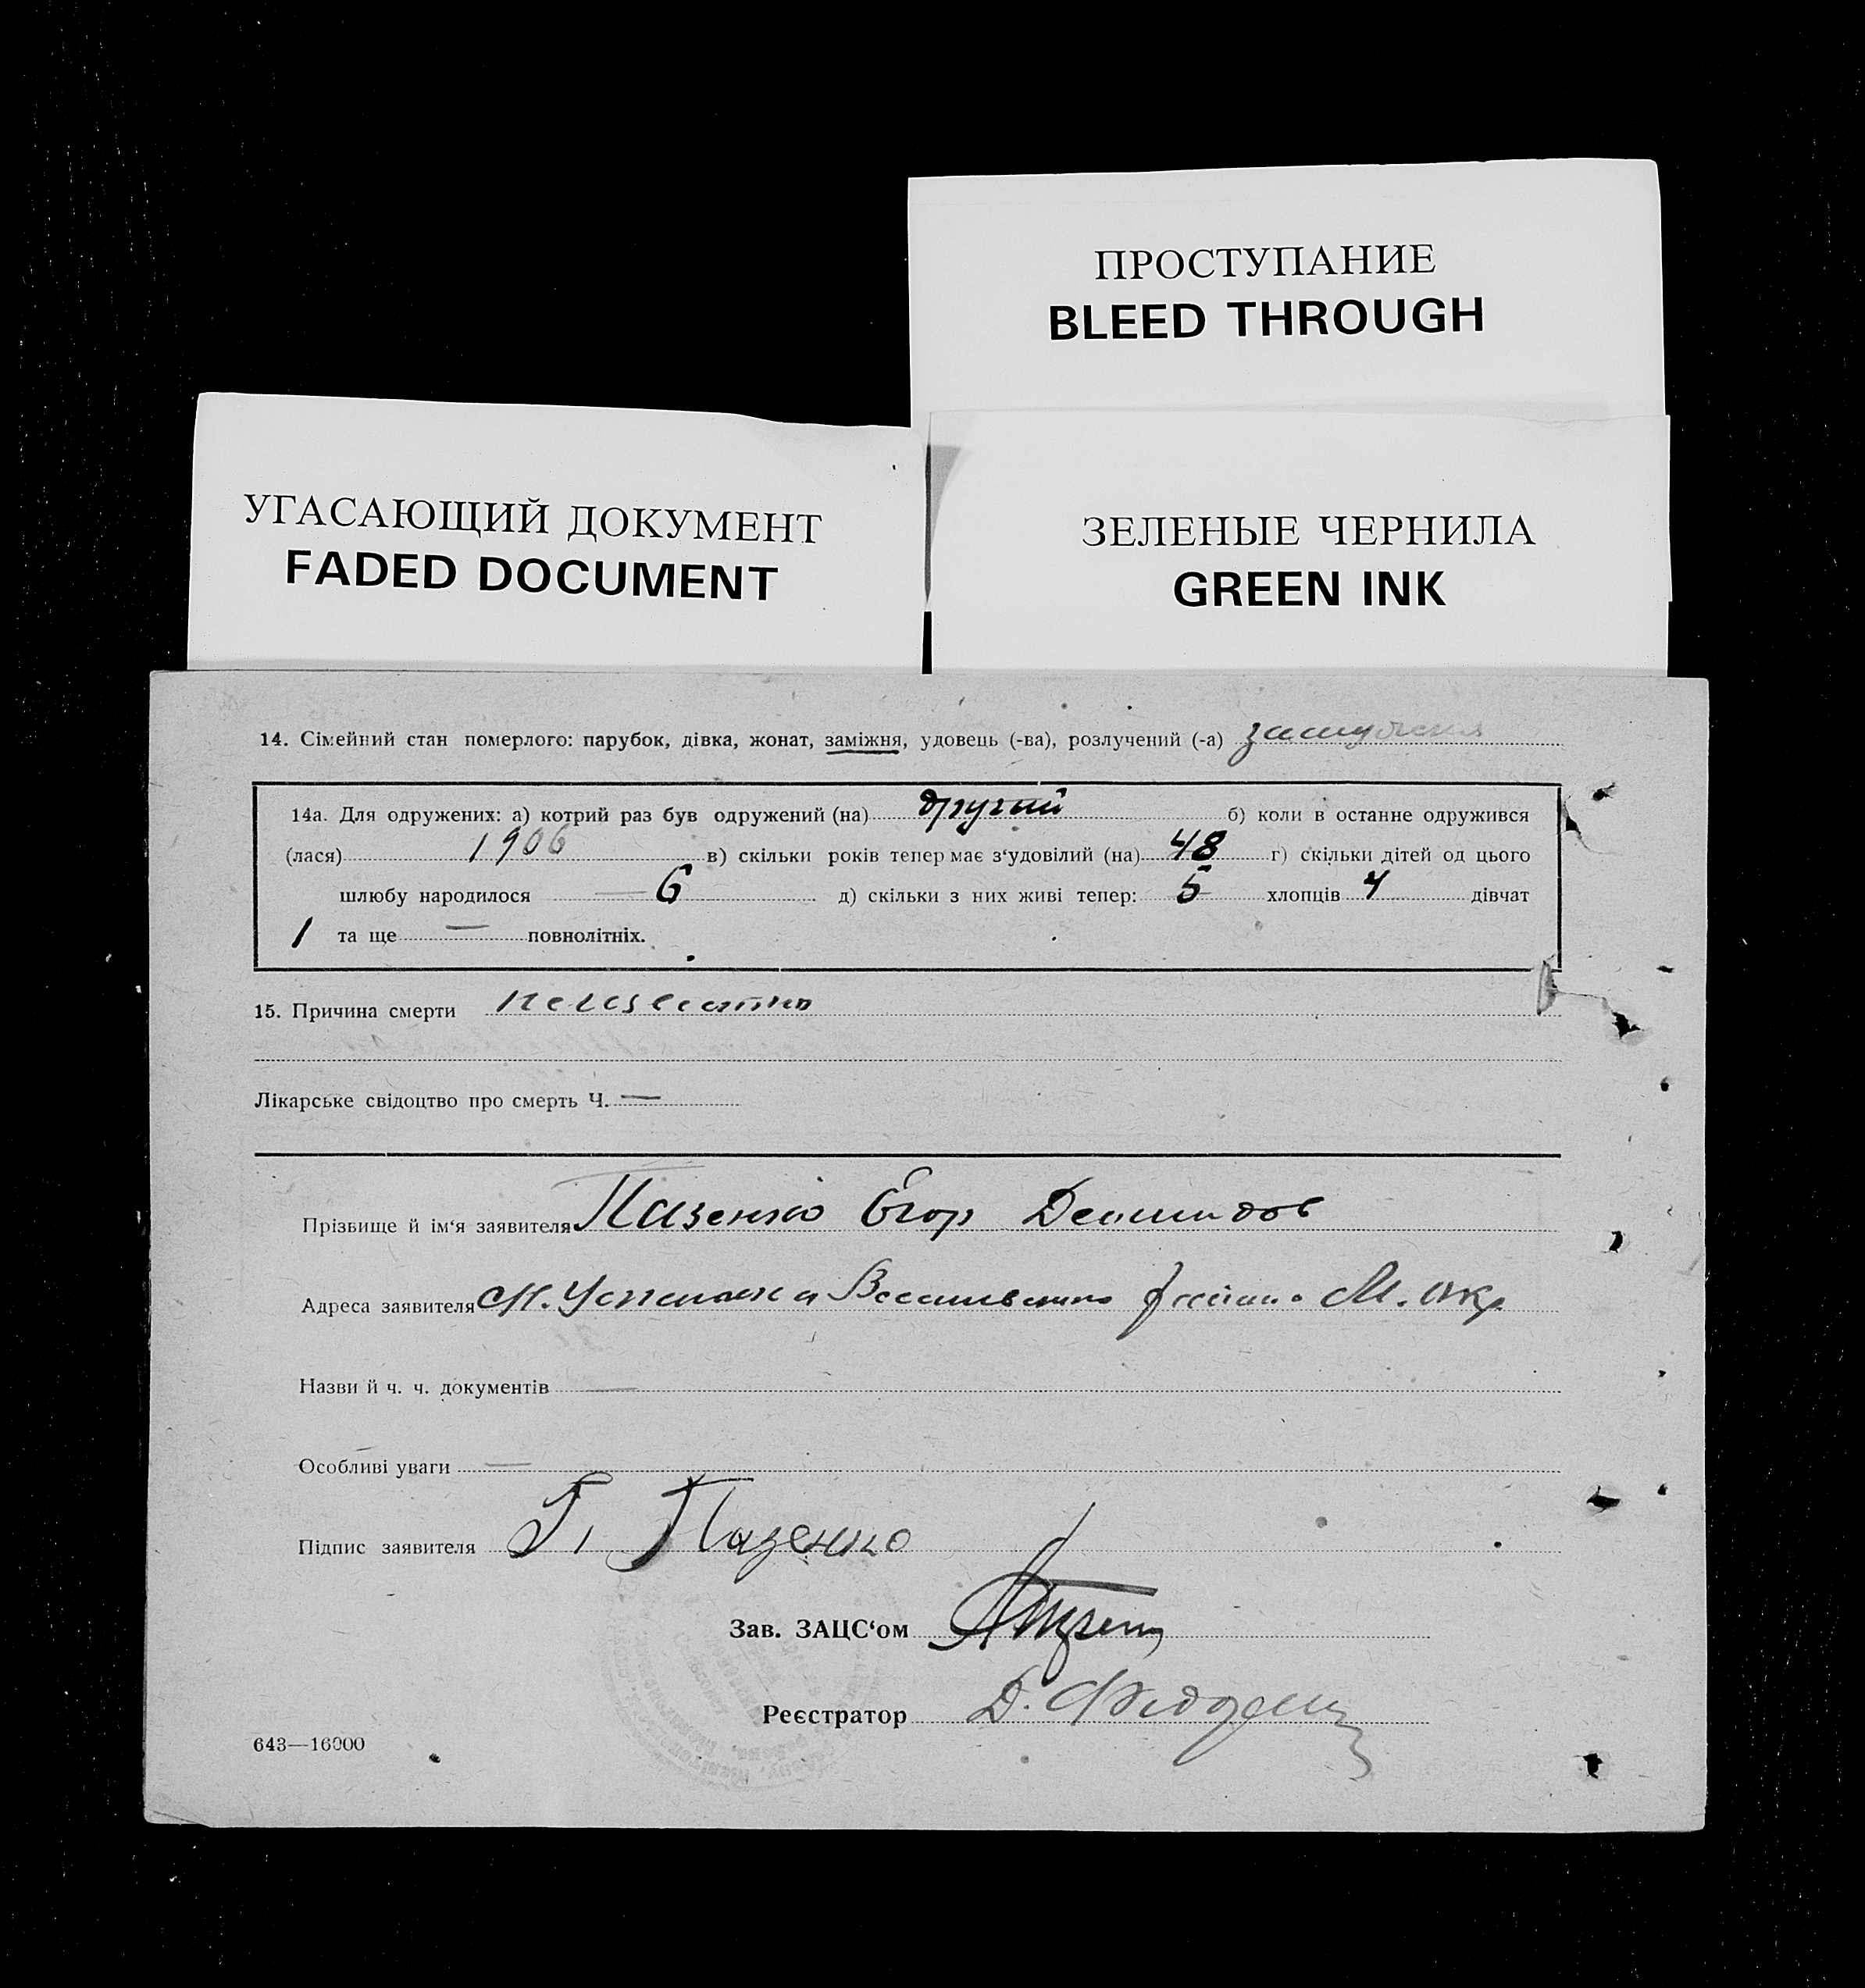 ПРОСТУПАНИЕ
BLEED THROUGH
УГАСАЮЩИЙ ДОКУМЕНТ
FADED DOCUMENT
ЗЕЛЕНЫЕ ЧЕРНИЛА
GREEN INK
14. Сімейний стан померлого: парубок, дівка, жонат, заміжня, удовець (-ва), розлучений (-а)
14а. Для одружених: а) котрий раз був одружений (на) другий б) коли в останне одружився
(лася) 1906 в) скільки років тепер має з‘удовілий (на) 48 г) скільки дітей од цього
шлюбу народилося — 6 д) скільки з них живі тепер: 5 хлопців 4 дівчат
1 та ще — повнолітніх.
15. Причина смерти неизвестно
Лікарське свідоцтво про смерть Ч. —
Прізвище й ім‘я заявителя Пазенко Егор Демидов
Адреса заявителя М. окр
Назви й ч. ч. документів —
Особливі уваги —
Підпис заявителя Г. Пазенко
Зав. ЗАЦС‘ом
Реєстратор Д.
643—16000